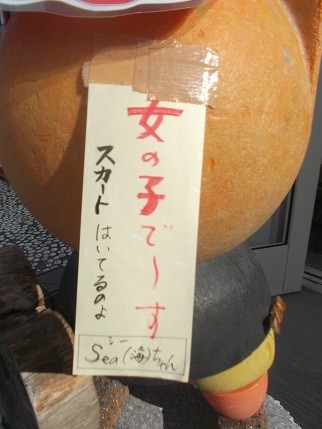 女の子で〜す
スカートはいてるのよ
シー
Sea(海)ちゃん